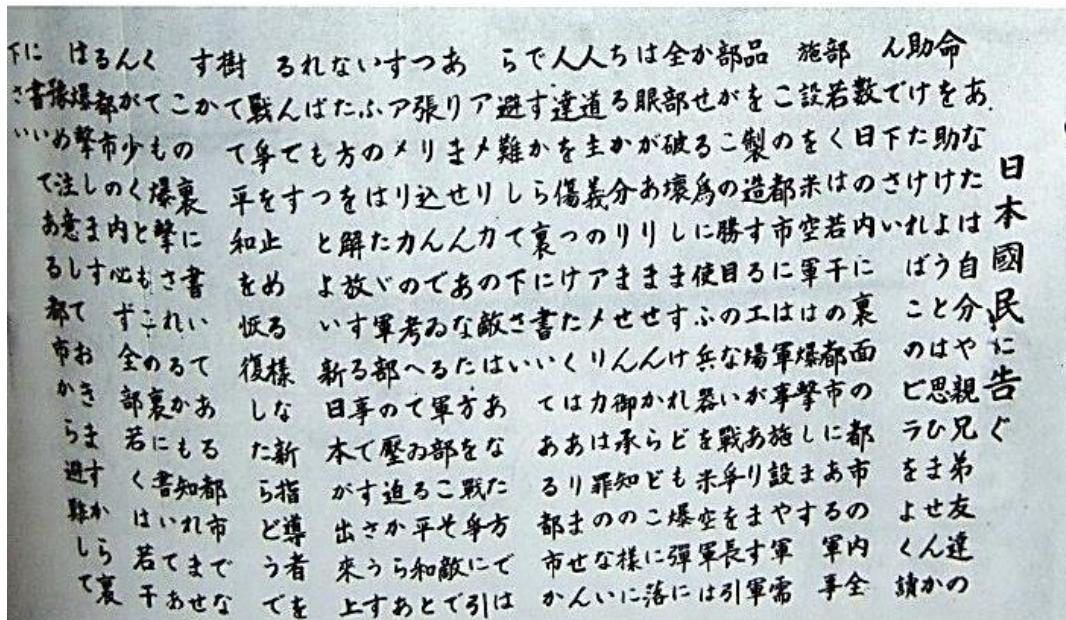 日本國民に告ぐ
あなたは自分や親兄弟友達の
命を助けようとは思ひませんか
助けたければこのビラをよく讀
んで下さい
数日の内に裏面の都市の内全
部若くは若干の都市にある軍事
施設を米空軍は爆撃します
この都市には軍事施設や軍需
品を製造する工場があります軍
部がこの勝目のない戰爭を長引
かせる爲に使ふ兵器を米空軍は
全部破壞しますけれども爆彈に
は眼がありませんからどこに落
ちるか分りません御承知の様に
人道主義のアメリカは罪のない
人達を傷つけたくはありません
ですから裏に書いてある都市か
ら避難して下さい
アメリカの敵はあなた方では
ありませんあなた方を戰爭に引
つ張り込んでゐる軍部こそ敵で
すアメリカの考へてゐる平和と
いふのはたゞ軍部の壓迫からあ
なた方を解放する事ですさうす
ればもつとよい新日本が出來上
るんです
戰爭を止める様な新指導者を
樹てて平和を恢復したらどうで
すか
この裏に書いてある都市でな
くても爆撃されるかも知れませ
んが少くともこの裏に書いてあ
る都市の内必ず全部若くは若干
は爆撃します
豫め注意しておきますから裏
に書いてある都市から避難して
下さい